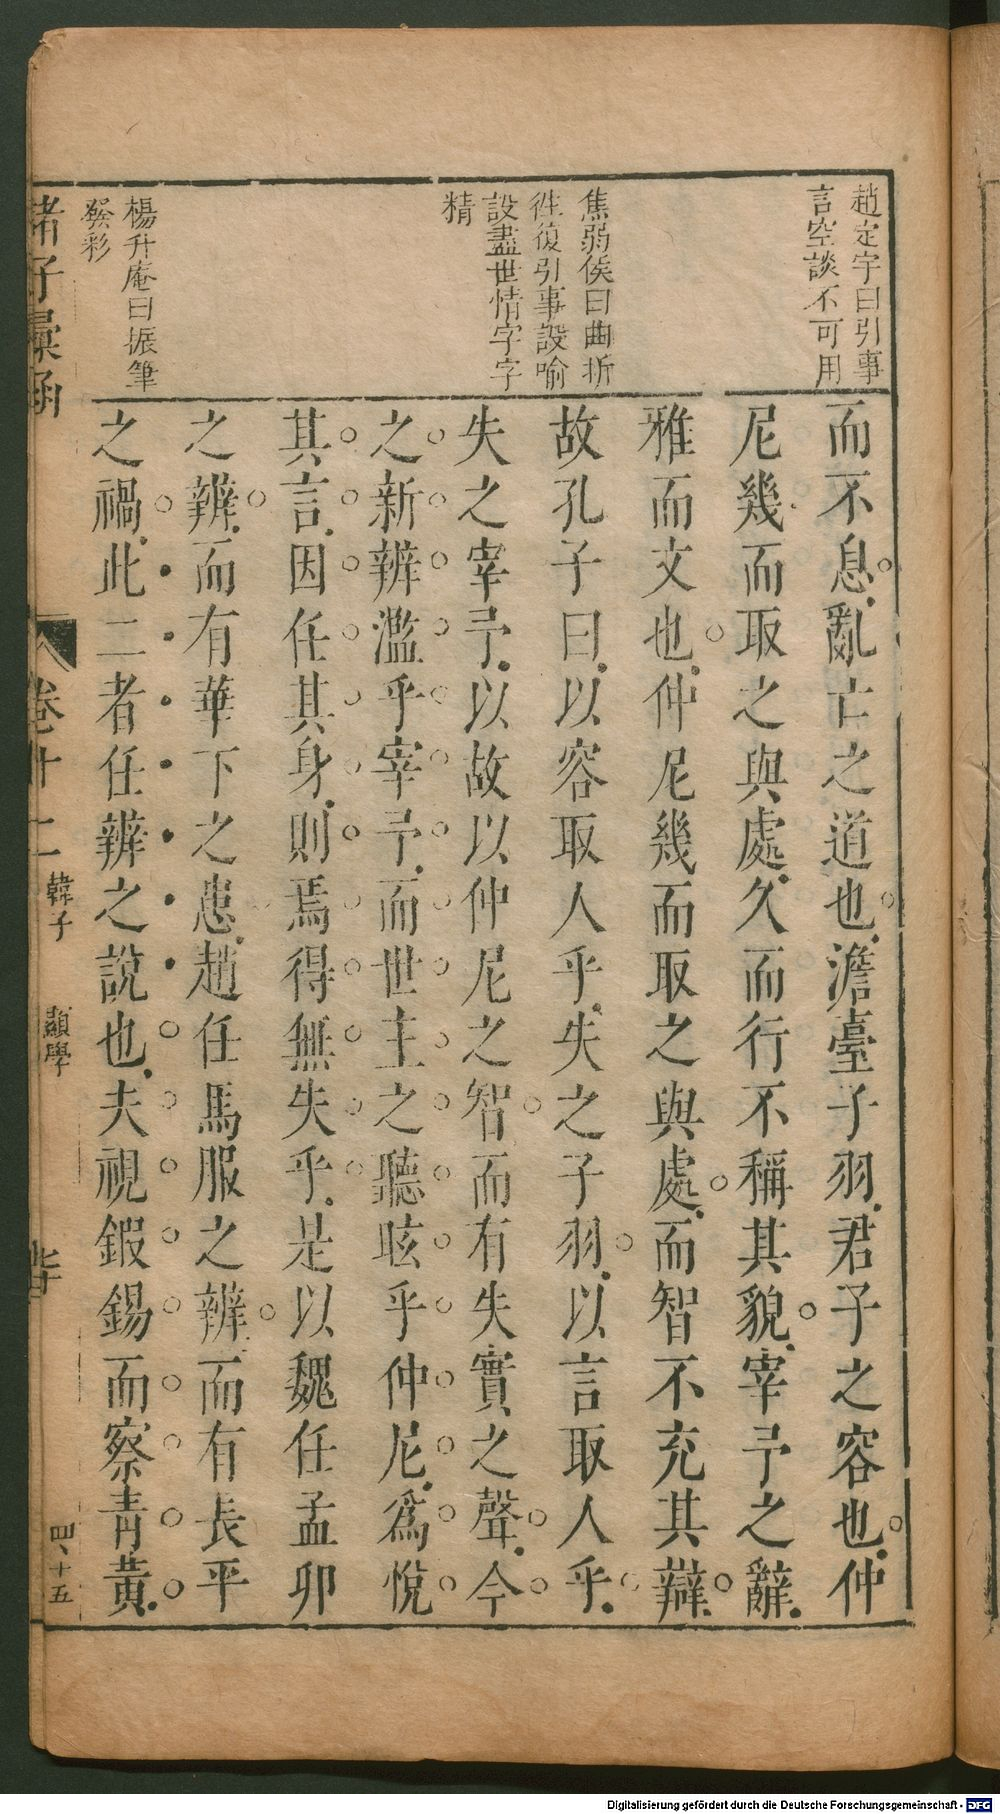 趙定宇曰引事
言空談不可用
焦弱侯曰曲折
徃復引事設喻
設盡世情字字
精
楊升庵曰振筆
發彩
而不息亂亡之道也澹臺子羽君子之容也仲
尼幾而取之與處久而行不稱其貌宰予之辭
雅而文也仲尼幾而取之與處而智不充其辯
故孔子曰以容取人乎失之子羽以言取人乎
失之宰予以故以仲尼之智而有失實之聲今
之新辨濫乎宰予而世主之聽眩乎仲尼爲悅
其言因任其身則焉得無失乎是以魏任孟卯
之辨而有華下之患趙任馬服之辨而有長平
之禍此二者任辨之說也夫視鍜錫而察青黃
諸子彙函
卷十二
韓子
顯學
四十五
Digitalisierung gefördert durch die Deutsche Forschungsgemeinschaft - DFG